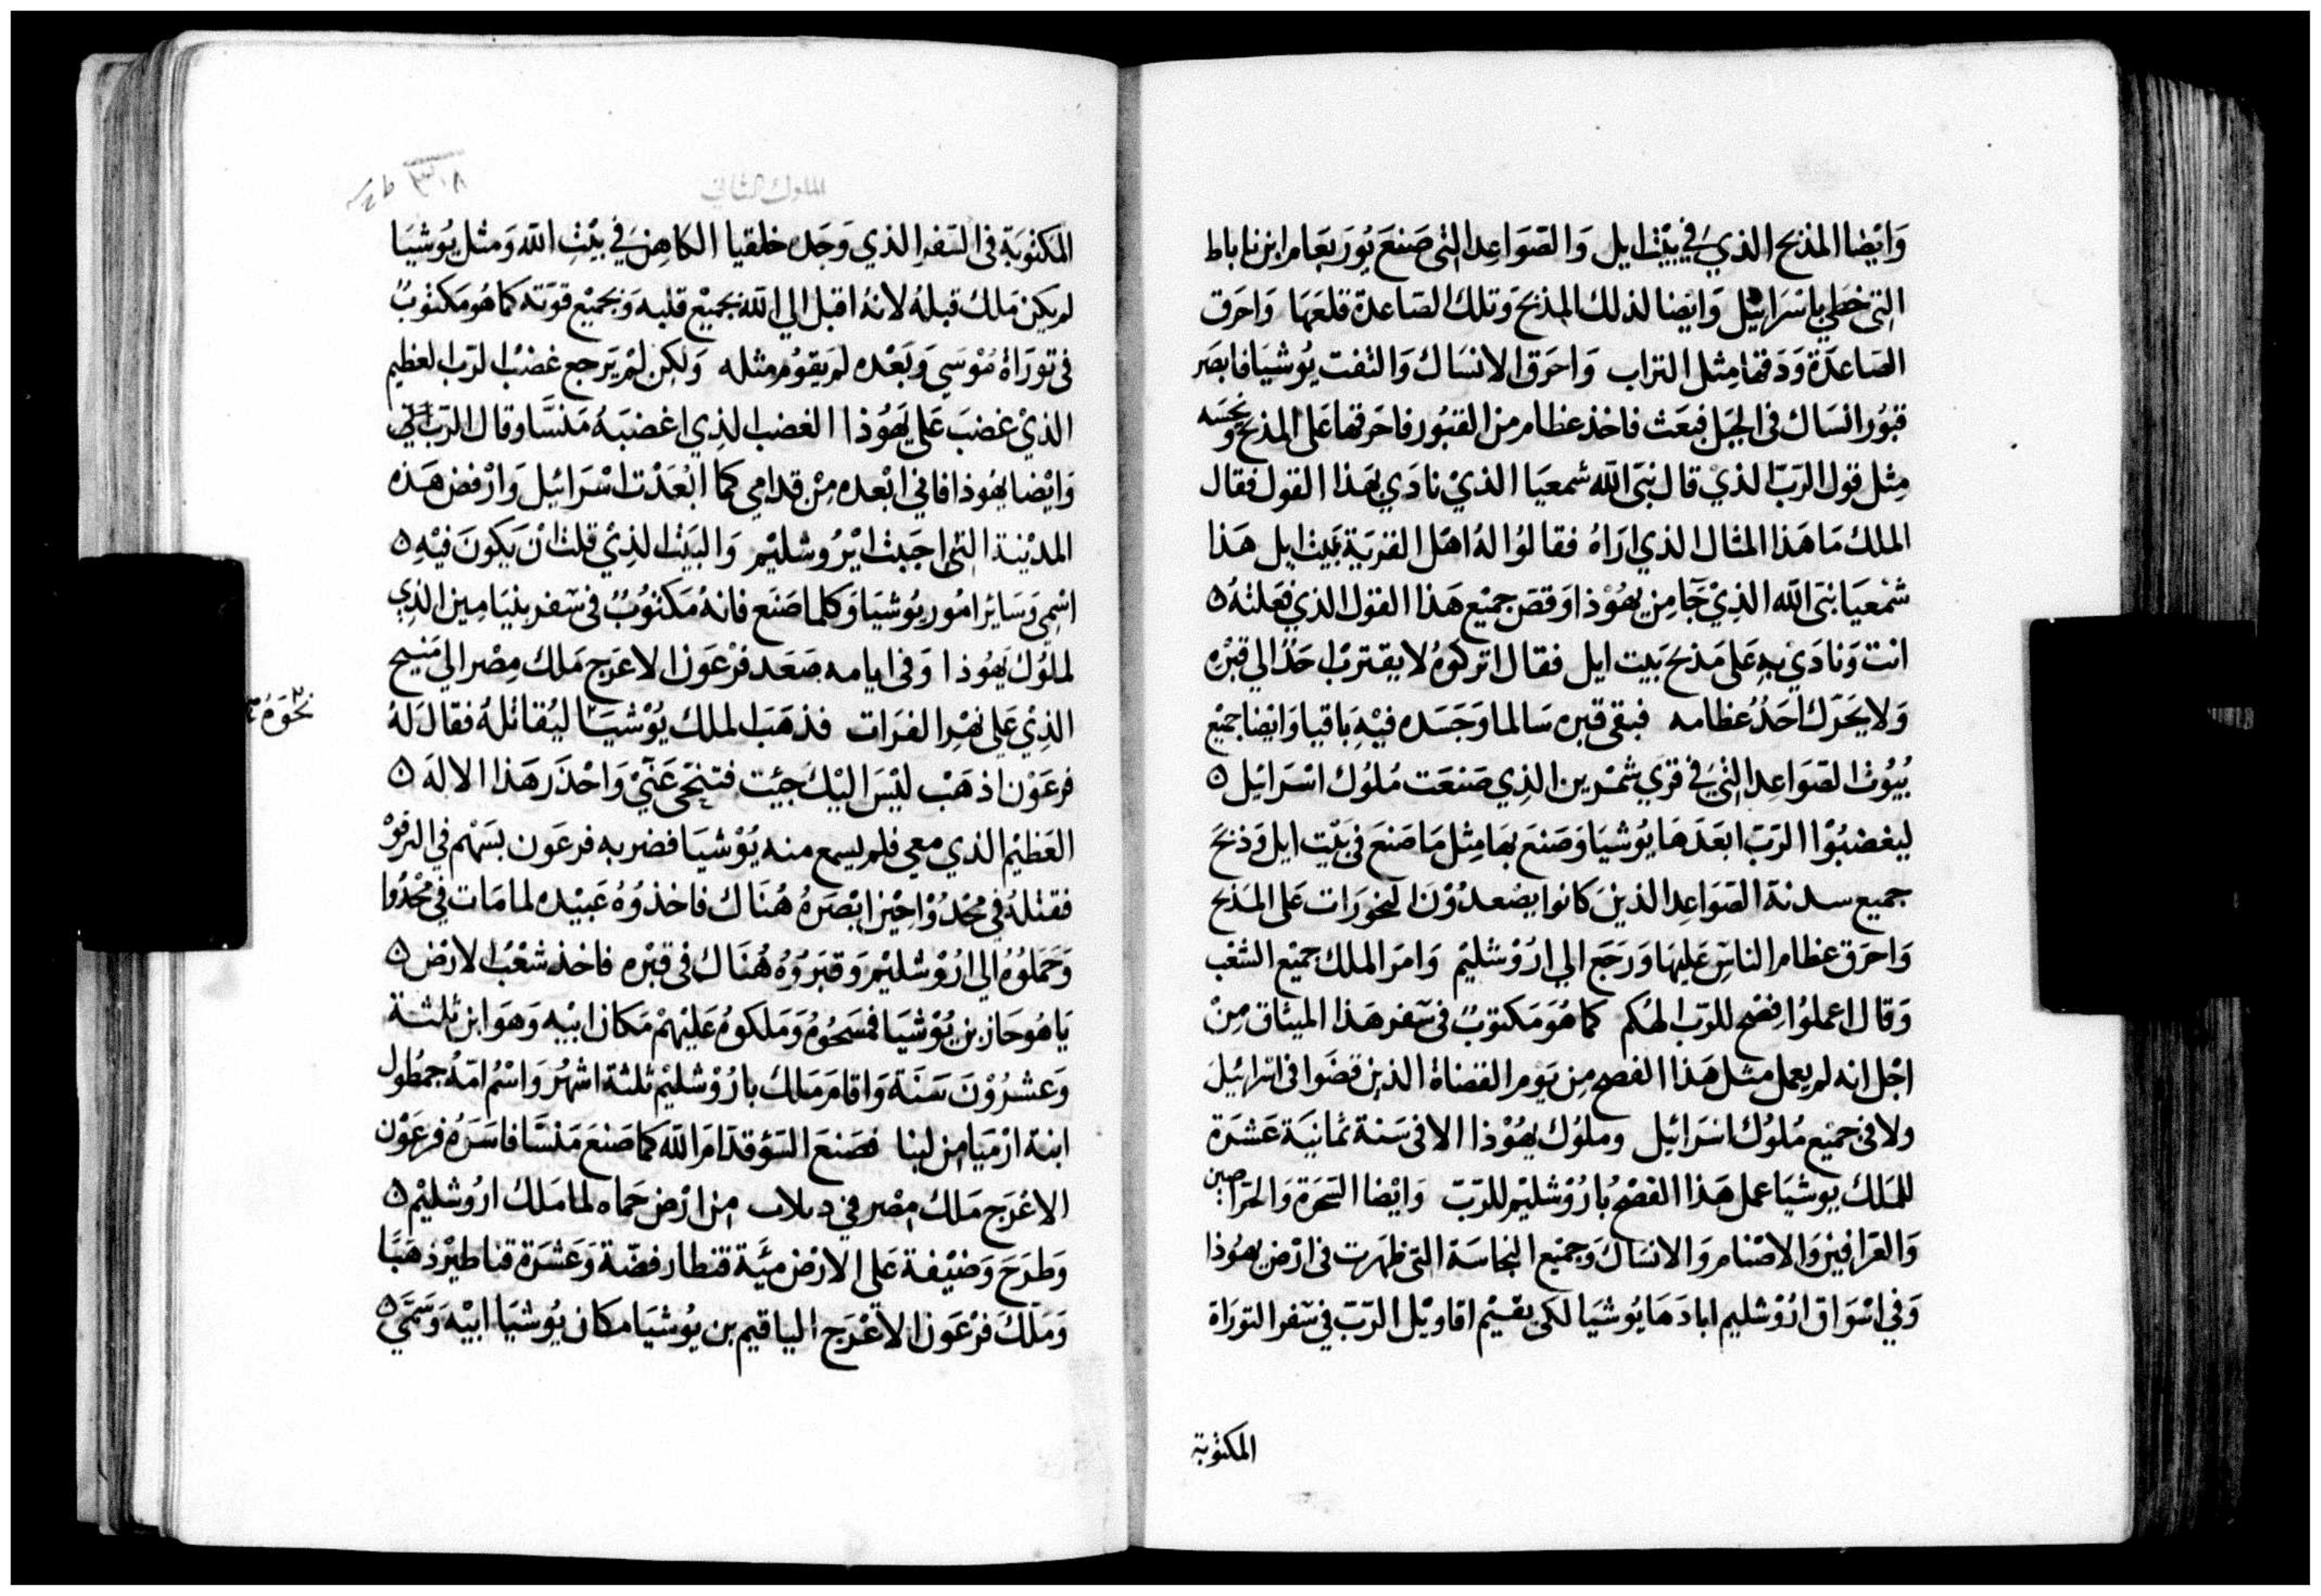 وَايْضا المذبح الذي في بيْت ايل وَالصَوَاعِد التي صَنعَ يُورَبعَام ابن ناباط
التي خطي باسْرَائيْل وَايْضا لذلك المذبح وَتلك الصَاعدة قلعَهَا وَاحَرق
الصَاعدَة وَدَقهَا مِثل التراب وَاحرَق الانسَاك وَالتفت يُوشيَا فابصَر
قبُور انسَاك في الجبَل فبعَث فاخذ عظام من القبُور فاحَرقها عَلى المذبح ونجسَه
مِثل قول الرَبّ الذيْ قال نبَي الله شمعيَا الذيْ نادَي بهَذا القول فقال
الملك مَا هَذا المثال الذي ارَاهُ فقالوُا لهُ اهَل القريَة بَيت ايل هَذا
شمْعيَا نبَى الله الذِيْ جَآ مِن يهُوْذا وَقصَ جميْع هَذا القول الذي فعَلتهُ ٥
انت وَنادَيْ بهِ عَلى مَذبح بَيت ايل فقال اتركوهُ لا يقتربْ احَدٌ الي قبْره
وَلا يحَرّك احَدٌ عظامه فبقى قبره سَالما وَجَسَده فيْهِ بَاقيا وَايْضا جميْع
بُيُوت الصَوَاعِد التيَ في قري شمْرين الذِي صَنعَت مُلوُك اسْرَائيْل ٥
ليغضبُوْا الرَبّ ابعَدَهَا يُوشيَا وَصَنعَ بهَا مِثل مَا صَنعَ في بَيْت ايل وَذبَحَ
جميع سدنة الصَوَاعِد الذينَ كانوا يصْعدُوْنَ البخورَات عَلى المَذبح
وَاحرَق عظام الناسِ عَليهَا وَرَجَع الي ارُوْشليْم وَامَر الملك جميْع الشعْب
وَقال اعملوُا فِصْح للرَبّ الهكم كما هُوَ مَكتوبٌ في سَفر هَذا الميثاق مِنْ
اجْل انه لم يعمل مثل هَذا الفصح مِن يَوم القضاة الذين قضَوا في اسْرائيْل
ولا في جميْع مُلوُك اسَرائيل وملوُك يهُوْذا الا في سَنة ثمانيَة عَشرَة
للمَلك يوشيَا عمل هَذا الفصْحُ بارُوْشليْم للرَبّ وَايْضا السَحَرَة وَالحرّاصِين
وَالعرّافين وَالاصْنام وَالانسَاكَ وَجميْع النجاسَة التي ظهَرت في ارْض يهُوذا
وَفي اسْوَاق ارُوْشليم ابادَهَا يُوشيَا لكى يقيْم اقاويْل الرَبّ في سَفر التورَاة
المكتوُبة
الملوك الثاني
٣٠٨
المكتوُبَة في السَفر الذي وَجَده خلقيا الكاهِن في بيْتِ الله وَمثل يُوشيَا
لم يكن مَلكٌ قبلهُ لانهُ اقبل الي الله بجميْع قلبه وَبجميْع قوَته كما هُو مَكتوُبٌ
في تورَاة مُوْسَي وَبَعْده لم يقوُم مثله وَلكِن لمْ يَرجع غضبْ الرّب العظيم
الذيْ غضبَ عَلى يَهُوْذا الغضب الذِي اغضبَهُ مَنسَّا وقال الرَبّ اني
وَايْضا يهُوذا فاني ابْعده مِنْ قدامي كما ابْعَدْت اسْرَائيْل وَارْفض هَذه
المديْنة التي احَبَبت ايْرُوشليْم وَالبَيْت الذِيْ قلت انْ يَكونَ فيْهِ ٥
اسْمِي وَسَائر امُور يُوشيَا وَكلما صَنَع فانهُ مَكتوُبٌ في سَفر بنيَامِين الذِي
لملوُك يَهُوذا وَفي ايامه صَعَد فرْعَون الاعرَج مَلك مِصْر الي مَنبح
الذِيْ عَلى نهْر الفرَات فذهَبَ الملك يُوْشيَا ليُقاتلهُ فقال لهُ
نحَوَهُ
فرعَوْن اذهَبْ ليْسَ اليْك جيْت فتنحْى عَنيْ وَاحْذَر هَذا الالهَ ٥
العَظيْم الذي معي فلم يسمع منه يُوْشيَا فضربه فرعَون بسَهْم في الترقوْ
فقتلهُ في مجْدُوْا حيْن ابْصَرهُ هُنَاك فاخذوُهُ عَبيْده لما مَات في مجْدُوا
وَحمَلوُهُ الي ارُوْشليْم وَقبَرُوهُ هُنَاك في قبْره فاخذ شعْبُ الارْض ٥
يَاهُوحَاز بن يُوْشيَا فمسَحُوهُ وَمَلكوهُ عَليْهمْ مَكان ابيْه وَهوَ ابن ثلثة
وَعشرُوْنَ سَنَة وَاقامَ مَلك بارُوْشليْم ثلثة اشهُر وَاسْمُ امّهُ جمطُول
ابنة ارْميَا مِن لبنا فصَنعَ السَوْ قدّامَ الله كما صَنعَ مَنسَّا فاسَرَهُ فرعَوْن
الاعْرَج مَلك مِصْر في دبلاب مِن ارْض حمَاه لما مَلك ارُوشليْم ٥
وَطرَحَ وَضيْفة عَلى الارْض ميَّة قنطار فضّة وَعَشرَة قناطيْر ذهَبًا
وَمَلّكَ فرْعَون الاعْرَج الياقيم بن يُوشيَا مكان يُوشيَا ابيْه وَسَمَّيَ ٥